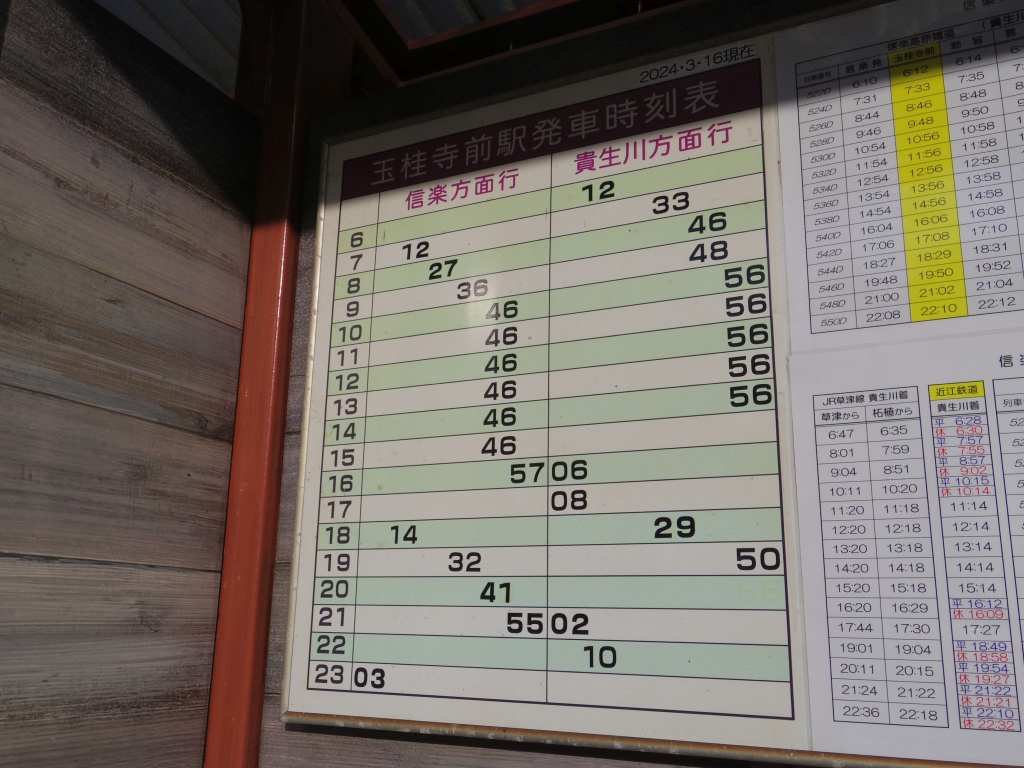 2024・3・16現在
玉桂寺前駅発車時刻表
信楽方面行 貴生川方面行
6 12
7 12 33
8 27 46
9 36 48
10 46 56
11 46 56
12 46 56
13 46 56
14 46 56
15 46
16 57 06
17 08
18 14 29
19 32 50
20 41
21 55 02
22 10
23 03
信楽高原鐵道
列車番号 信楽発 玉桂寺前 勅旨
522D 6:10 6:12 6:14
524D 7:31 7:33 7:35
526D 8:44 8:46 8:48
528D 9:46 9:48 9:50
530D 10:54 10:56 10:58
532D 11:54 11:56 11:58
534D 12:54 12:56 12:58
536D 13:54 13:56 13:58
538D 14:54 14:56 14:58
540D 16:04 16:06 16:08
542D 17:06 17:08 17:10
544D 18:27 18:29 18:31
546D 19:48 19:50 19:52
548D 21:00 21:02 21:04
550D 22:08 22:10 22:12
信楽
JR草津線 貴生川着 近江鉄道
草津から 柘植から 貴生川着
6:47 6:35 平 6:28 休 6:30
8:01 7:59 平 7:57 休 7:55
9:04 8:51 平 8:57 休 9:02
10:11 10:20 平 10:15 休 10:14
11:20 11:18 11:14
12:20 12:18 12:14
13:20 13:18 13:14
14:20 14:18 14:14
15:20 15:18 15:14
16:20 16:29 平 16:12 休 16:09
17:44 17:30 17:27
19:01 19:04 平 18:49 休 18:58
20:11 20:15 平 19:54 休 19:27
21:24 21:22 平 21:22 休 21:21
22:36 22:18 平 22:10 休 22:32